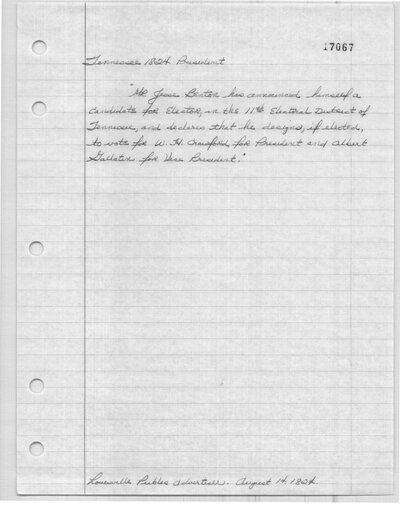 17067
Tennessee 1824 President
"Mr Jesse Benton has announced himself a
candidate for Elector, in the 11th Electoral District of
Tennessee, and declares that he designs, if elected,
to vote for W. H. Crawford for President and Albert
Gallatin for Vice President."
Louisville Public Advertiser. August 14, 1824.